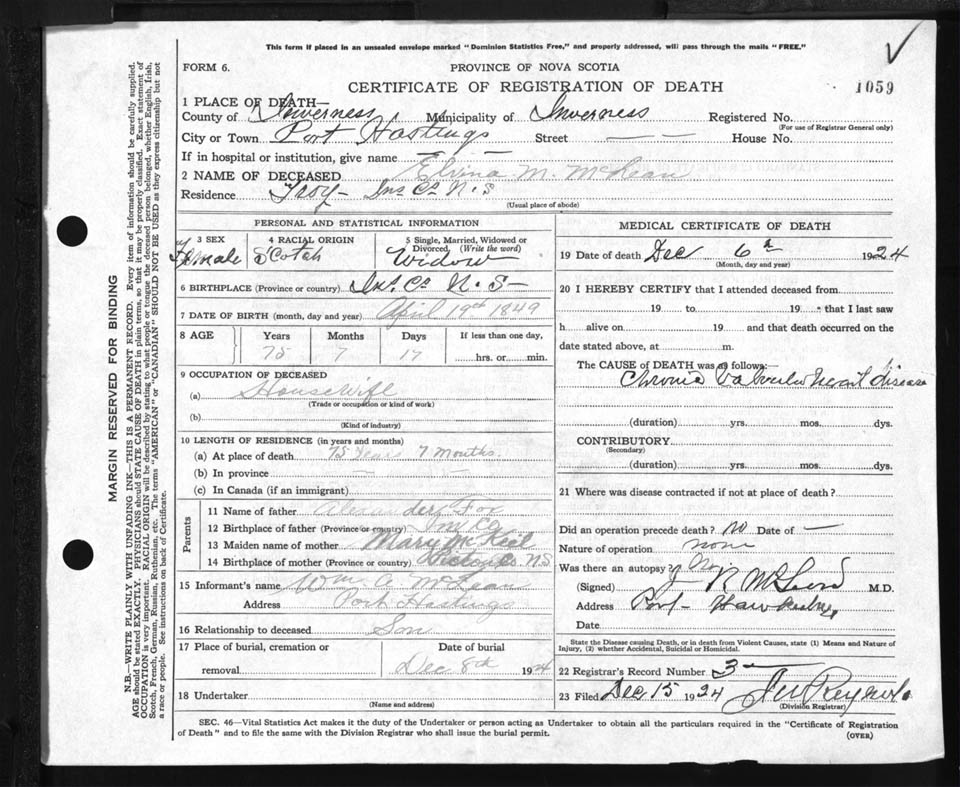 This form if placed in an unsealed envelope marked "Dominion Statistics Free," and properly addressed, will pass through the mails "FREE."
FORM 6.
PROVINCE OF NOVA SCOTIA
CERTIFICATE OF REGISTRATION OF DEATH
1059
1 PLACE OF DEATH—
County of Inverness Municipality of Inverness Registered No.
(For use of Registrar General only)
City or Town Port Hastings Street — — House No.
If in hospital or institution, give name — —
2 NAME OF DECEASED Elvina M. McLean
Residence Troy - Inv Co N.S
(Usual place of abode)
PERSONAL AND STATISTICAL INFORMATION
3 SEX Female
4 RACIAL ORIGIN Scotch
5 Single, Married, Widowed or Divorced, (Write the word) Widow
6 BIRTHPLACE (Province or country) Inv. Co N.S—
7 DATE OF BIRTH (month, day and year) April 19th 1849
8 AGE Years Months Days If less than one day,
75 7 17 hrs. or min.
9 OCCUPATION OF DECEASED
(a) Housewife
(Trade or occupation or kind of work)
(b)
(Kind of industry)
10 LENGTH OF RESIDENCE (in years and months)
(a) At place of death 75 Years 7 Months.
(b) In province — —
(c) In Canada (if an immigrant)
Parents
11 Name of father Alexander Fox
12 Birthplace of father (Province or country) Inv Co
13 Maiden name of mother Mary McKeil
14 Birthplace of mother (Province or country) Victoria Co N.S
15 Informant's name Wm. A McLean
Address Port Hastings
16 Relationship to deceased Son
17 Place of burial, cremation or removal
Date of burial
Dec 8th 1924
18 Undertaker
(Name and address)
MEDICAL CERTIFICATE OF DEATH
19 Date of death Dec 6th 1924
(Month, day and year)
20 I HEREBY CERTIFY that I attended deceased from
19 to 19 that I last saw
h alive on 19 and that death occurred on the
date stated above, at m.
The CAUSE OF DEATH was as follows:—
Chronic Valvular Heart disease
(duration) yrs. mos. dys.
CONTRIBUTORY
(Secondary)
(duration) yrs. mos. dys.
21 Where was disease contracted if not at place of death?
Did an operation precede death? No Date of —
Nature of operation none
Was there an autopsy? No
(Signed) McLeod M.D.
Address Port Hawkesbury
Date
State the Disease causing Death, or in death from Violent Causes, state (1) Means and Nature of Injury, (2) whether Accidental, Suicidal or Homicidal.
22 Registrar's Record Number 3—
23 Filed Dec 15 1924
(Division Registrar)
SEC. 46—Vital Statistics Act makes it the duty of the Undertaker or person acting as Undertaker to obtain all the particulars required in the "Certificate of Registration
of Death" and to file the same with the Division Registrar who shall issue the burial permit.
(OVER)
MARGIN RESERVED FOR BINDING
N.B.—WRITE PLAINLY WITH UNFADING INK—THIS IS A PERMANENT RECORD. Every item of information should be carefully supplied.
AGE should be stated EXACTLY. PHYSICIANS should STATE CAUSE OF DEATH in plain terms, so that it may be properly classified. Exact statement of
OCCUPATION is very important. RACIAL ORIGIN will be described by stating to what people or tongue the deceased person belonged, whether English, Irish,
Scotch, French, German, Russian, Ruthenian, etc. The terms "AMERICAN" or "CANADIAN" SHOULD NOT BE USED as they express citizenship but not
a race or people. See instructions on back of Certificate.